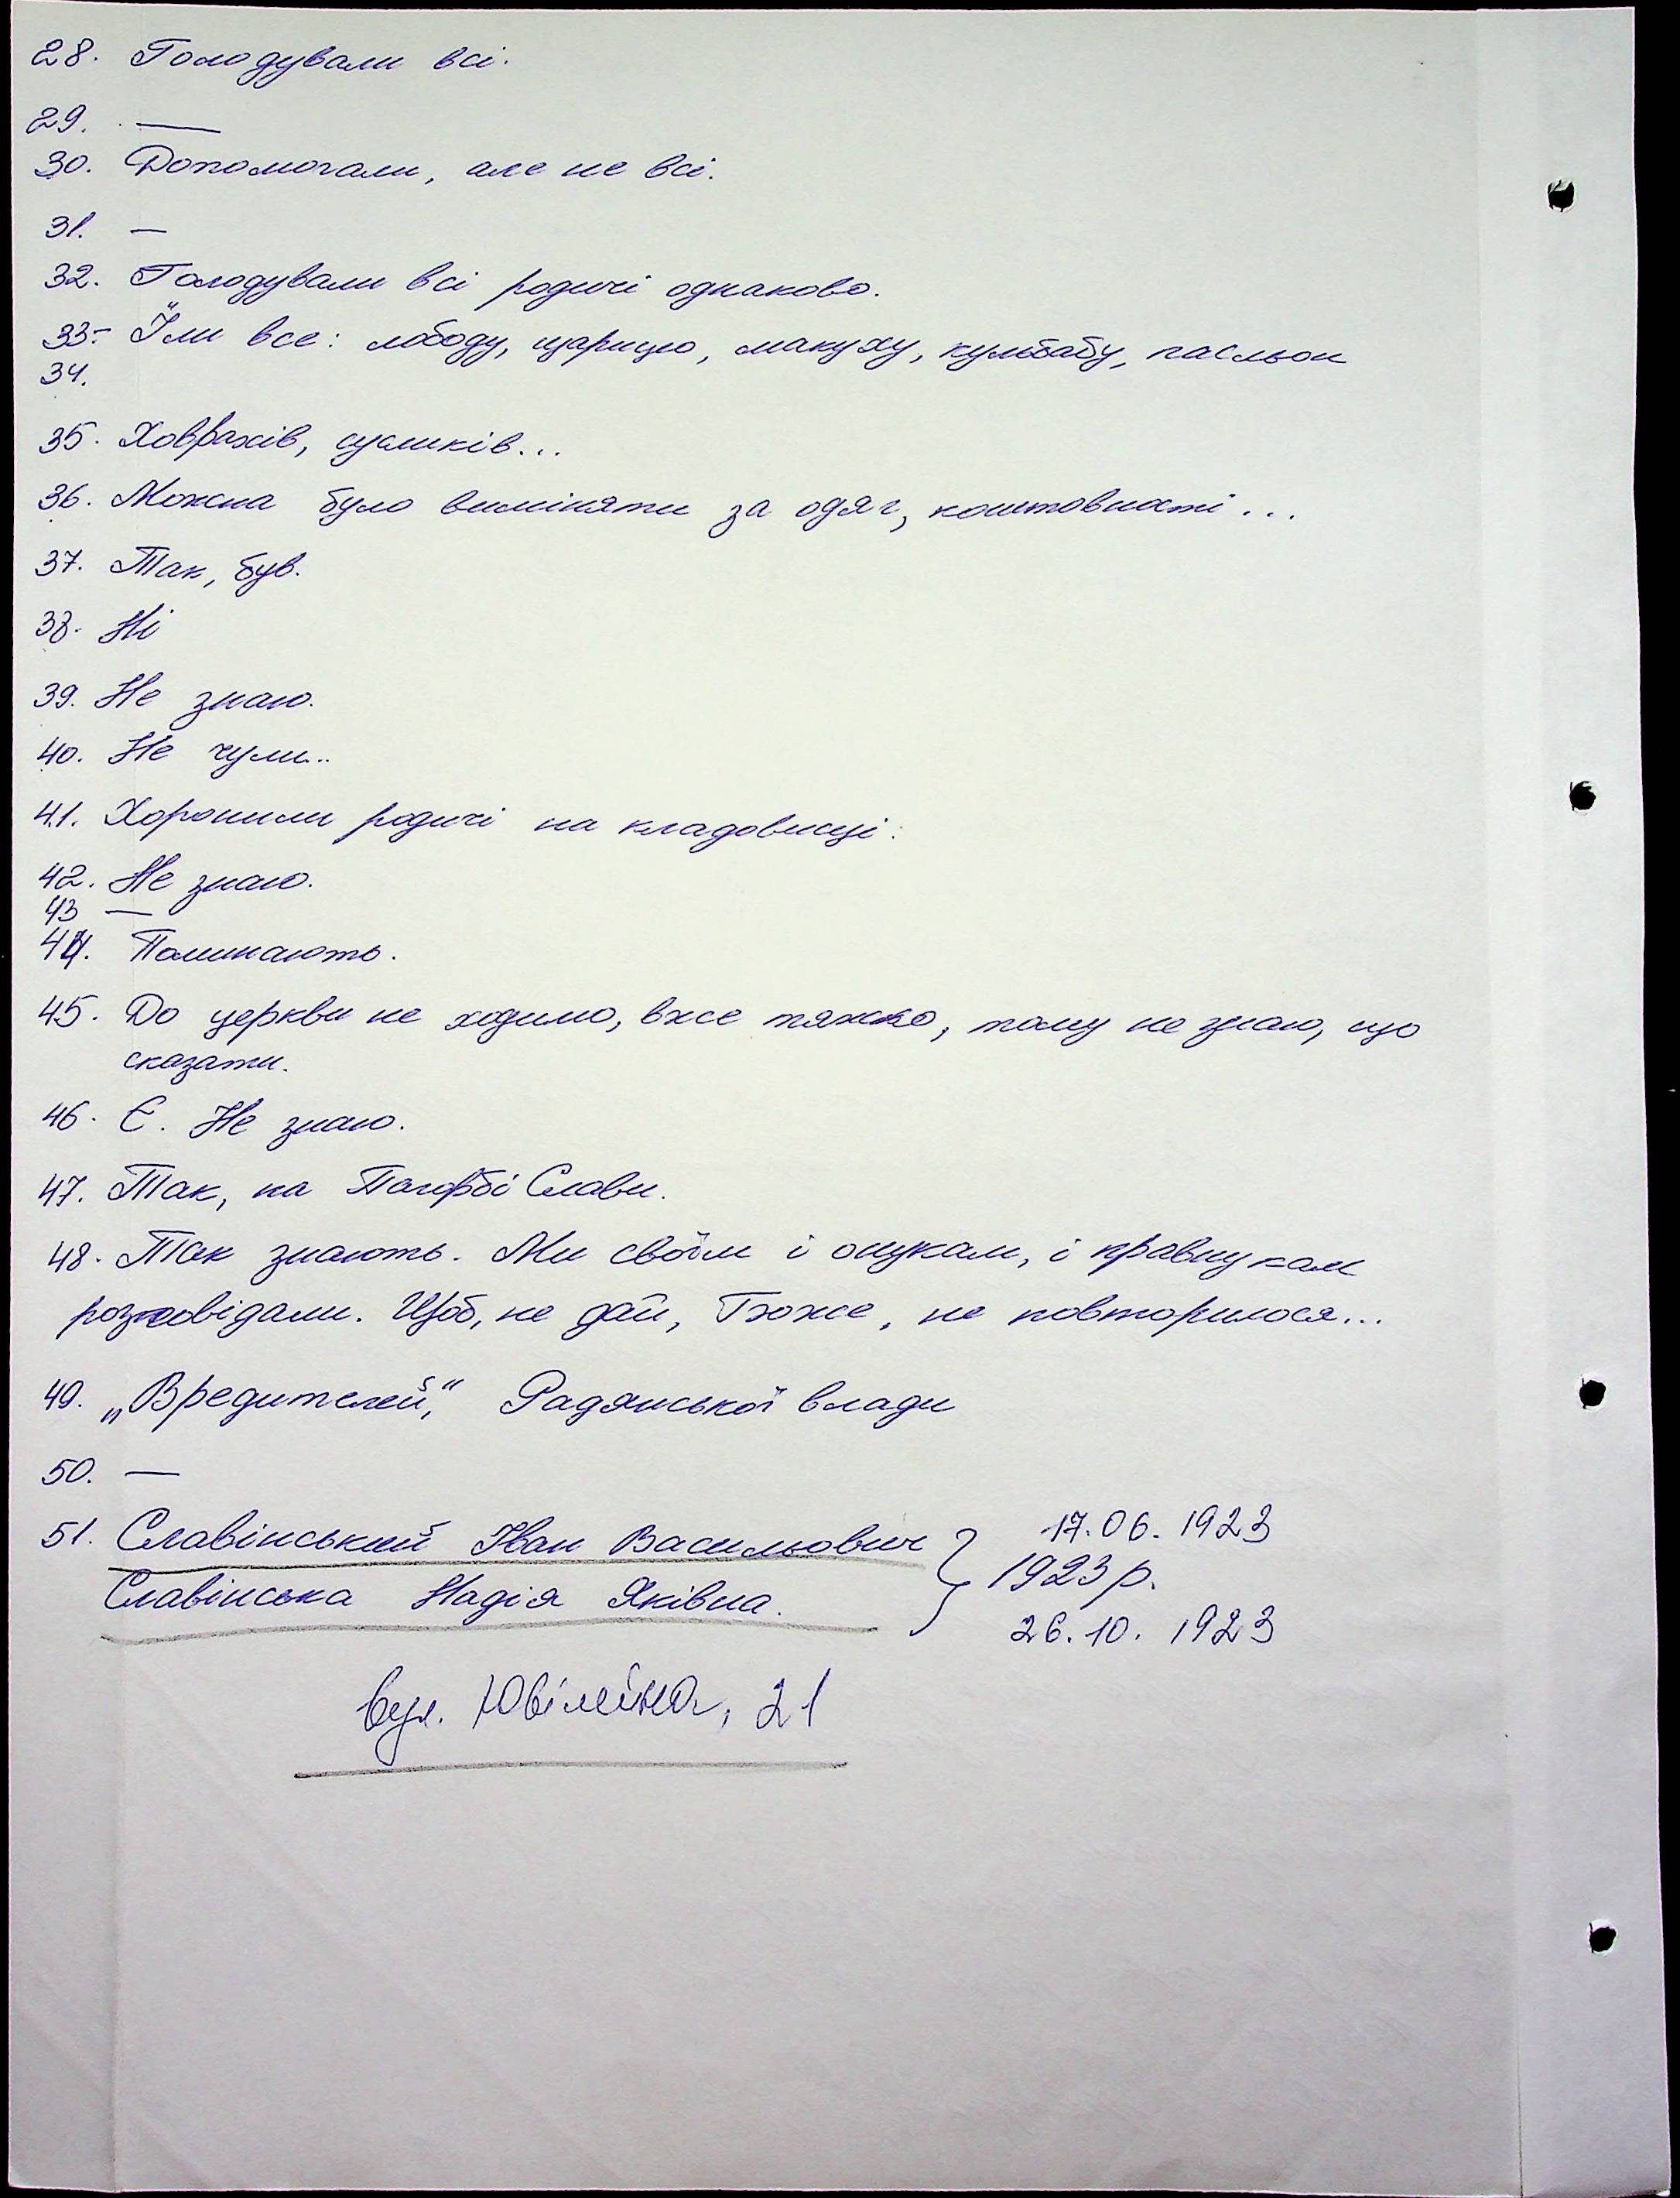 28. Голодували всі.
29. —
30. Допомогали, але не всі.
31. —
32. Голодували всі родичі однаково.
33- Їли все: лободу, щирицю, макуху, кульбабу, пасльон
34.
35. Ховрахів, сусликів...
36. Можна було виміняти за одяг, коштовності...
37. Так, був.
38. Ні
39. Не знаю.
40. Не чули...
41. Хоронили родичі на кладовищі.
42. Не знаю.
43 —
44. Поминають.
45. До церкви не ходимо, вже тяжко, тому не знаю, що
сказати.
46. Є. Не знаю.
47. Так, на Пагорбі Слави.
48. Так знають. Ми своїм і онукам, і правнукам
розповідали. Щоб, не дай, Боже, не повторилося...
49. „Вредителей“, Радянської влади
50. —
51. Славінський Іван Васильович 17.06.1923
1923 р.
Славінська Надія Яківна. 26.10.1923
вул. Ювілейна, 21